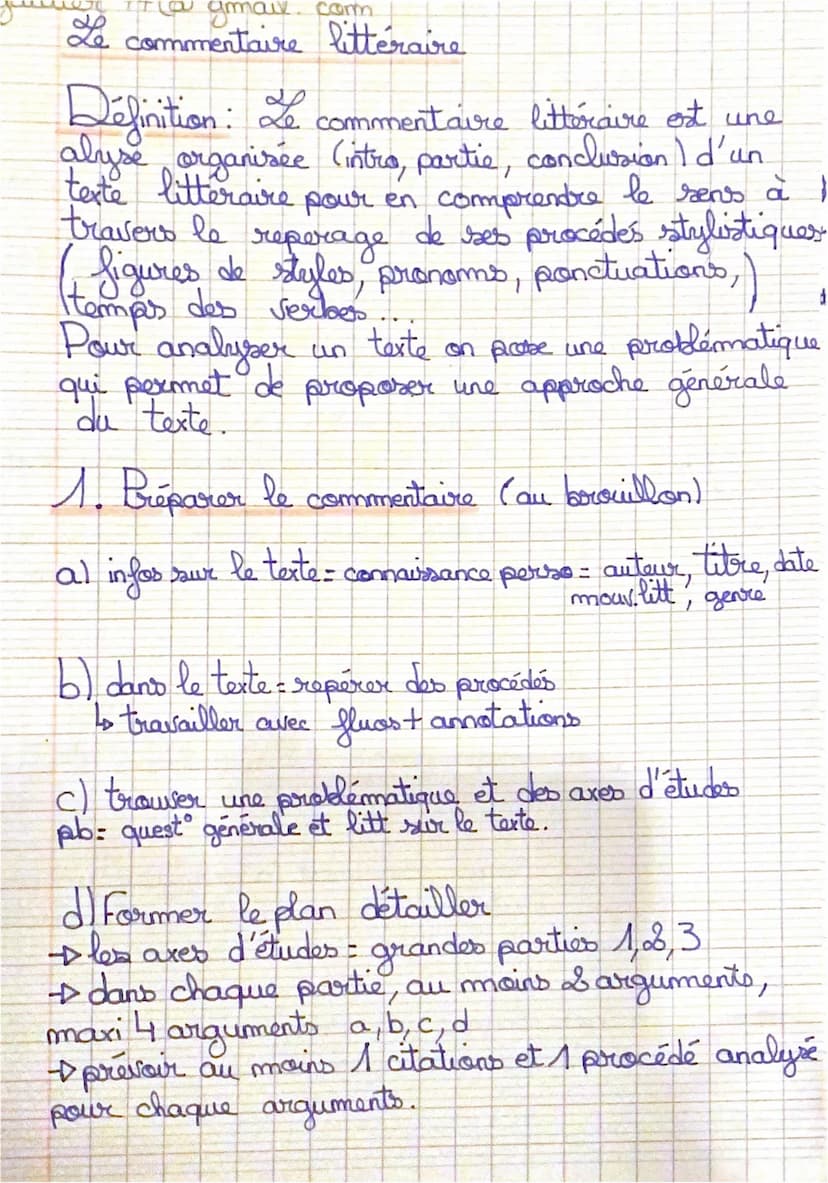 @ gmail. com
Le commentaire littéraire
Définition : Le commentaire littéraire est une
alyse organisée (intro, partie, conclusion) d'un
texte littéraire pour en comprendre le sens à
travers le reperage de ses procédés stylistiques
(figures de styles, pronoms, ponctuations,)
temps des verbes...
Pour analyser un texte on pose une problématique
qui permet de proposer une approche générale
du texte.
1. Préparer le commentaire (au brouillon)
a) infos sur le texte = connaissance perso = auteur, titre, date
mouv. litt, genre
b) dans le texte = repérer des procédés
↳ travailler avec fluos + annotations
c) trouver une problématique et des axes d'études
pb = quest° générale et litt sur le texte.
d) Former le plan détailler
→ les axes d'études = grandes parties 1, 2, 3
→ dans chaque partie, au moins 2 arguments,
maxi 4 arguments a, b, c, d
→ prévoir au moins 1 citations et 1 procédé analysé
pour chaque arguments.